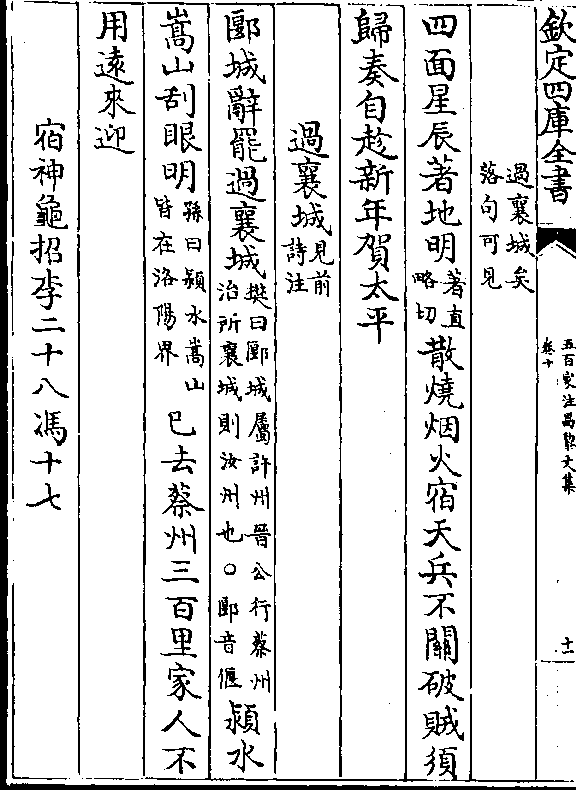 欽定四庫全書
五百家注昌黎文集
卷十
十一
過襄城矣
落句可見
四面星辰著地明著直略切散燒烟火宿天兵不關破賊須
歸奏自趁新年賀太平
過襄城見前詩注
郾城辭罷過襄城樊曰郾城屬許州晉公行蔡州治所襄城則汝州也○郾音偃潁水
嵩山刮眼明孫曰潁水嵩山皆在洛陽界已去蔡州三百里家人不
用遠來迎
宿神龜招李二十八馮十七